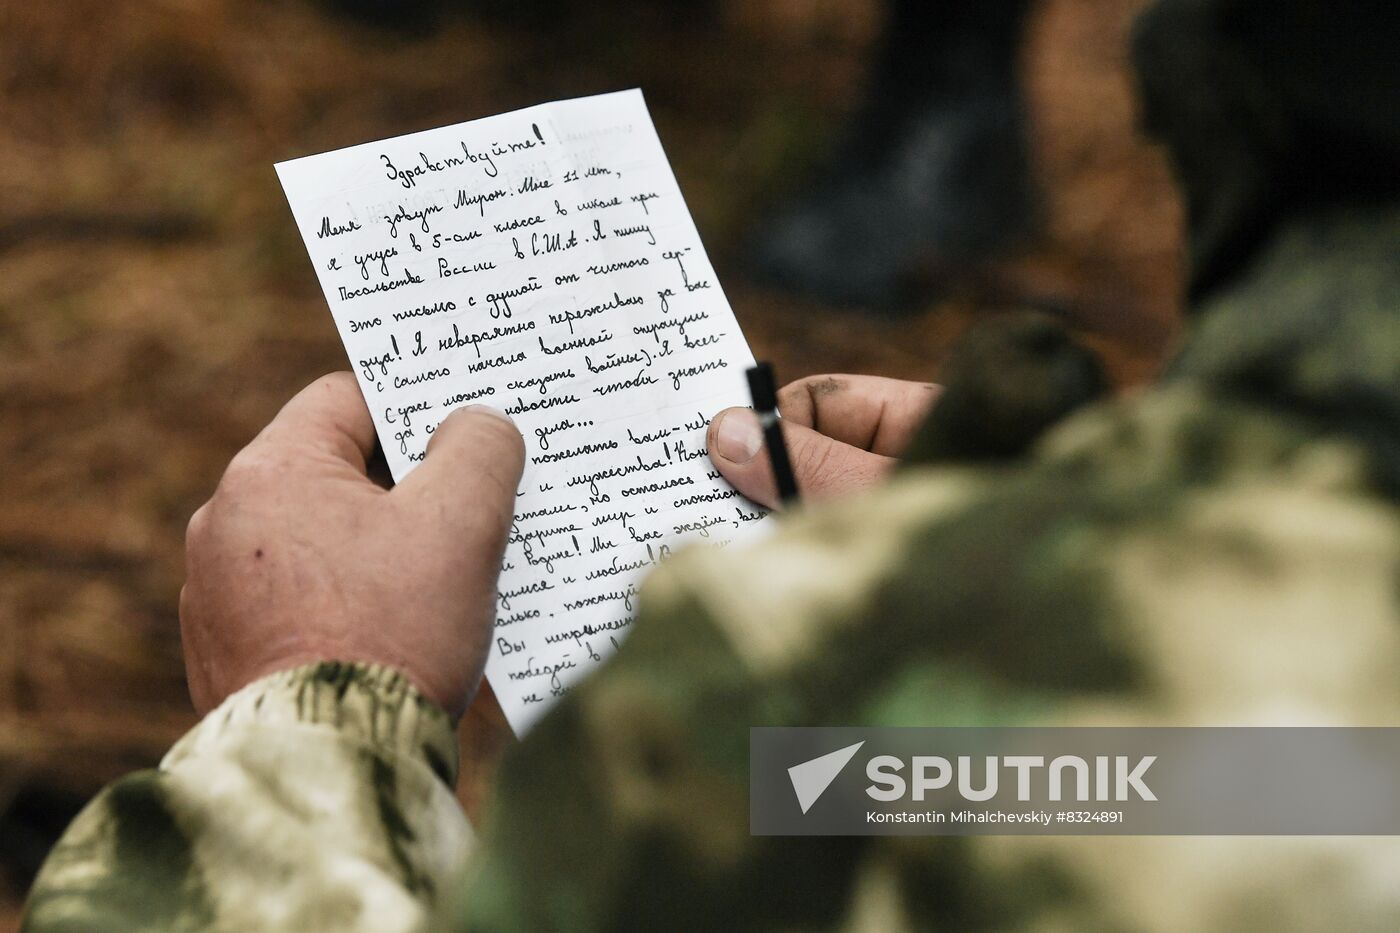 Здравствуйте!
Меня зовут Мирон. Мне 11 лет,
я учусь в 5-ом классе в школе при
Посольстве России в С.Ш.А. Я пишу
это письмо с душой от чистого сер-
дца! Я невероятно переживаю за вас
с самого начала военной операции
(уже можно сказать войны). Я всег-
да новости чтобы знать
дела...
пожелать вам-нев
и мужества!
стали, но осталось
одарите мир и спокойст
й Родине! Мы вас ждём, вер
димся и любим!
олько, пожалуй
Вы непремен
победой в
не
SPUTNIK
Konstantin Mihalchevskiy #8324891